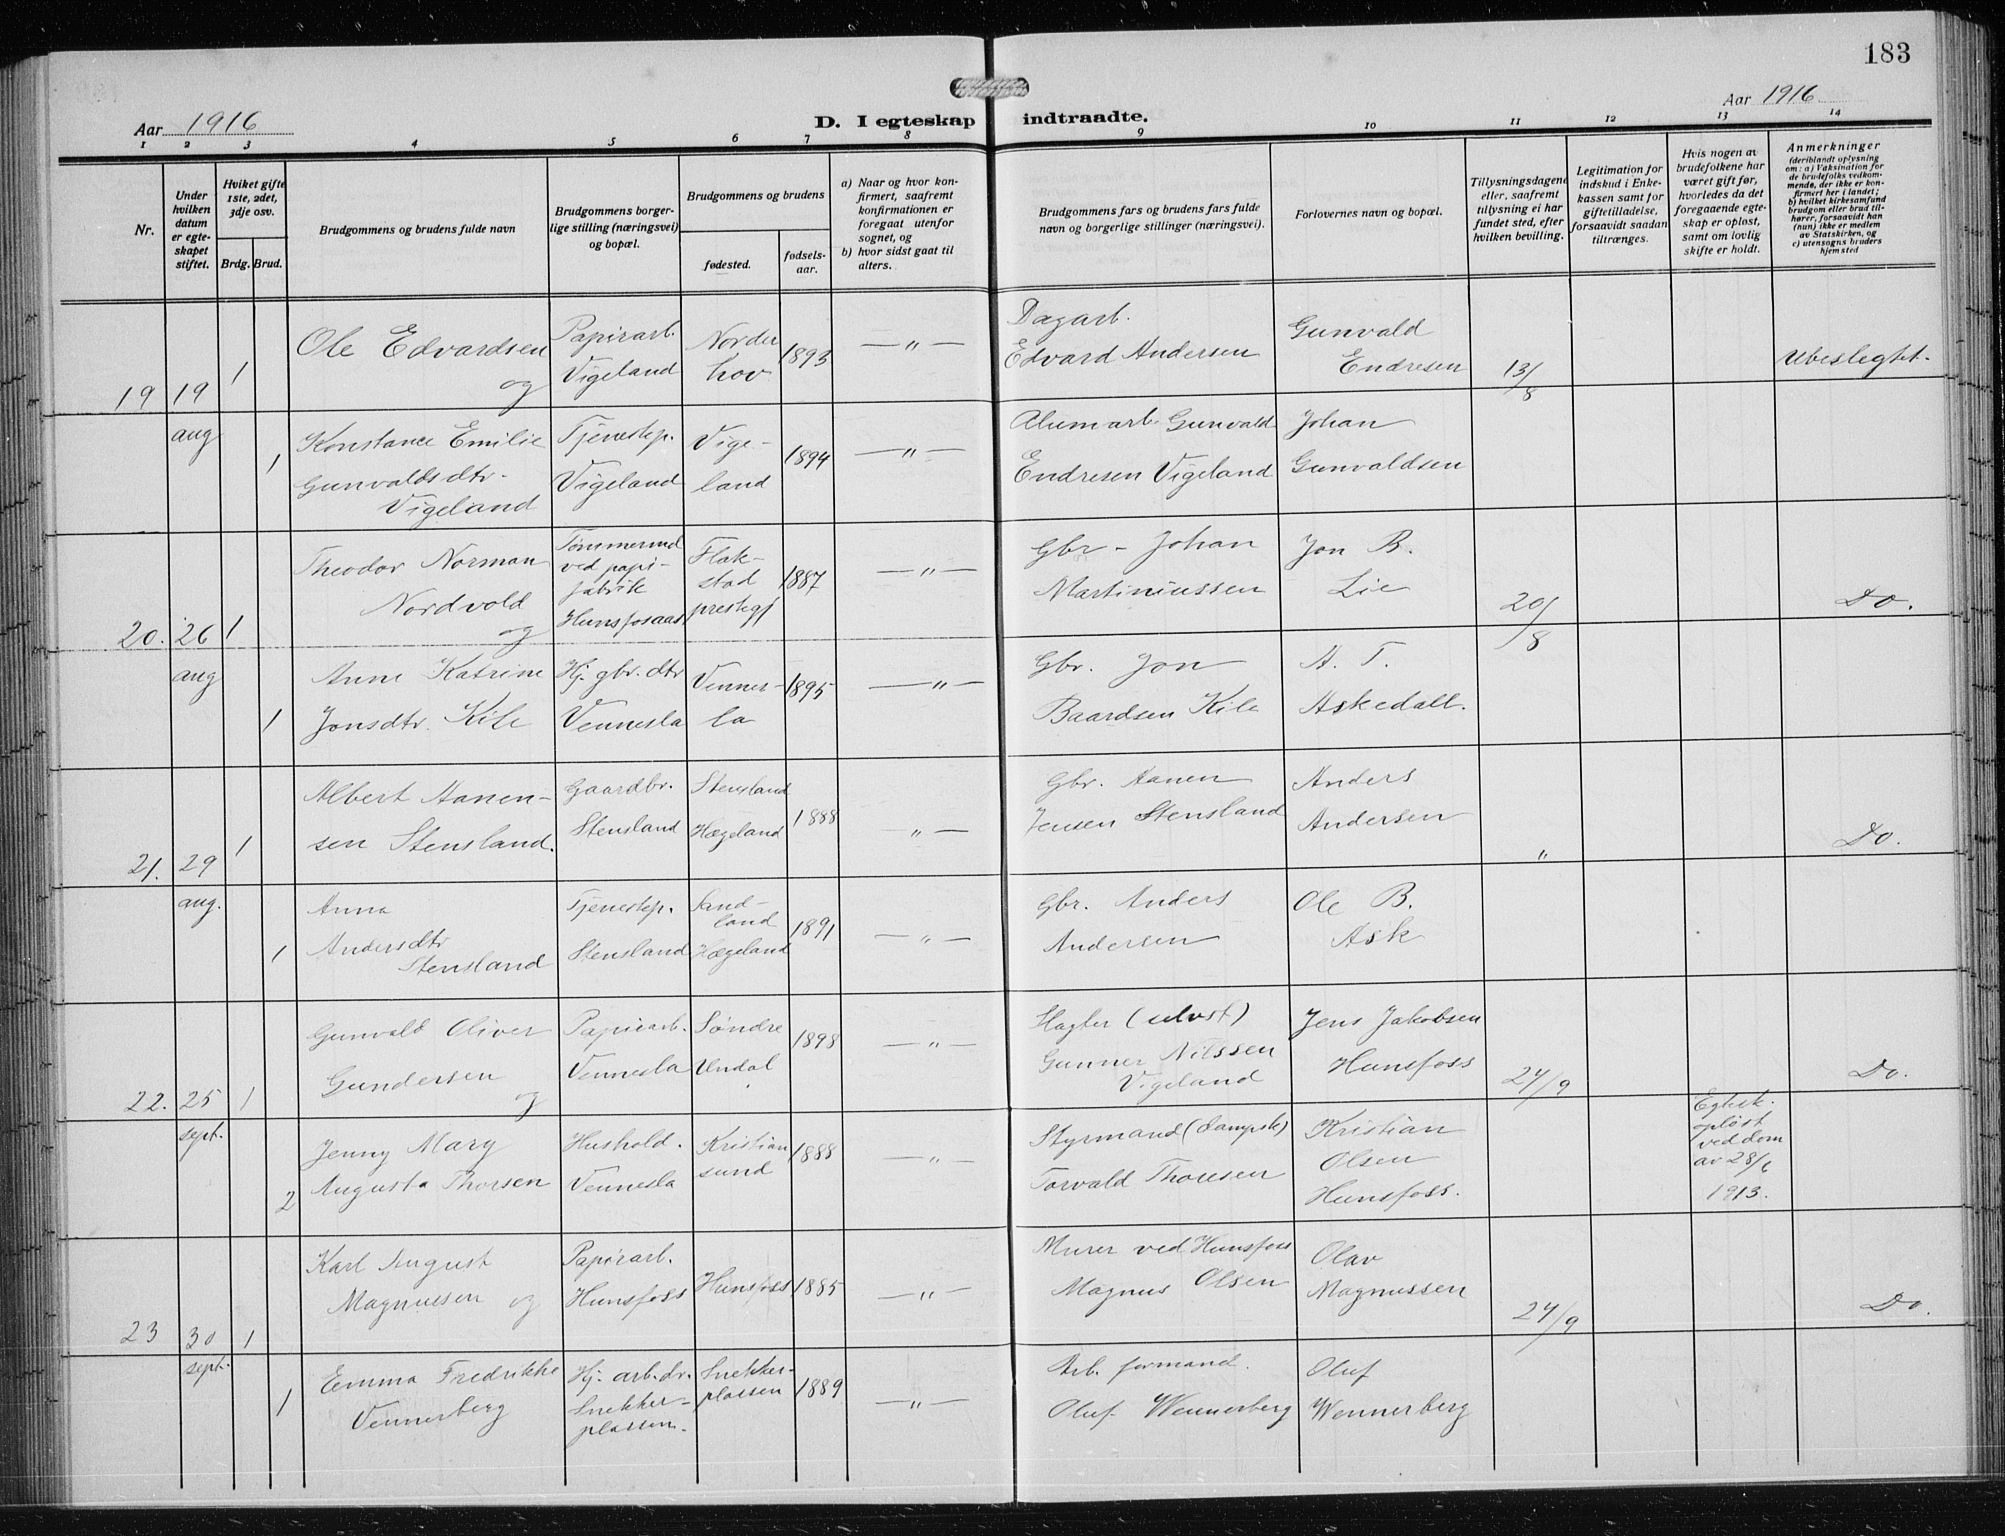 183
Aar 1916
D. I egteskap indtraadte.
Aar 1916
1 2 3 4 5 6 7 8 9 10 11 12 13 14
Nr.
Under hvilken datum er egteskapet stiftet.
Hviket gifte 1ste, 2det, 3dje osv.
Brdg. Brud.
Brudgommens og brudens fulde navn
Brudgommens borgerlige stilling (næringsvei) og bopæl.
Brudgommens og brudens
fødested.
fødselsaar.
a) Naar og hvor konfirmert, saafremt konfirmationen er foregaat utenfor sognet, og
b) hvor sidst gaat til alters.
Brudgommens fars og brudens fars fulde navn og borgerlige stillinger (næringsvei).
Forlovernes navn og bopæl.
Tillysningsdagene eller, saafremt tillysning ei har fundet sted, efter hvilken bevilling.
Legitimation for indskud i Enkekassen samt for giftetilladelse, forsaavidt saadan tiltrænges.
Hvis nogen av brudefolkene har været gift før, hvorledes da det foregaaende egteskap er opløst, samt om lovlig skifte er holdt.
Anmerkninger
(deriblandt oplysning om: a) Vaksination for de brudefolks vedkommende, der ikke er konfirmert her i landet; b) hvilket kirkesamfund brudgom eller brud tilhører, forsaavidt han (hun) ikke er medlem av Statskirken, og c) utensogns bruders hjemsted
19 19 aug 1 Ole Edvardsen og
Papirarb. Vigeland
Norderhov 1893 — " —
Dagarb. Edvard Andersen
Gunvald Endresen
13/8
Ubeslegtet.
1 Konstance Emilie Gunvaldsdtr. Vigeland
Tjenestep. Vigeland
Vigeland 1894 — " —
Alumarb. Gunvald Endresen Vigeland
Johan Gunvaldsen
20. 26 aug 1 Theodor Norman Nordvold og
ved papifabrik Hunsfosaas
Flakstad prestegj 1887 — " —
Gbr - Johan Martiniussen
Jon B. Lie
20/8
Do.
1 Anne Katrine Jonsdtr. Kile
Hj. gbr. dtr Vennesla
Vennesla 1895 — " —
Gbr. Jon Baardsen Kile
A. T. Askedall.
21. 29 aug. 1 Albert Aanensen Stensland.
Gaardbr. Stensland
Stensland Hægeland 1888 — " —
Gbr. Aanen Jensen Stensland
Anders Andersen
"
Do.
1 Anna Andersdtr Stensland
Tjenestep. Stensland
Sandland Hægeland 1891 — " —
Gbr. Anders Andersen
Ole B. Ask
22. 25 sept. 1 Gunvald Oliver Gundersen og
Papirarb. Vennesla
Søndre Undal 1898 — " —
Gunner Nilssen Vigeland
Jens Jakobsen Hunsfoss
24/9
Do.
2 Jenny Mary Augusta Thorsen
Hushold. Vennesla
Kristiansund 1888 — " —
Styrmand (dampsk) Torvald Thorsen
Kristian Olsen Hunsfoss.
Egtesk. opløst ved dom av 28/6 1913.
23 30 sept. 1 Karl August Magnussen og
Papirarb. Hunsfoss
Hunsfoss 1885 — " —
Murer ved Hunsfoss Magnus Olsen
Olav Magnussen
24/9
Do.
1 Emma Fredrikke Vennerberg
Hj. arb. dr. Snekkerplassen.
Snekkerplassen 1889 — " —
Arb. formand. Oluf Wennerberg
Oluf Wennerberg